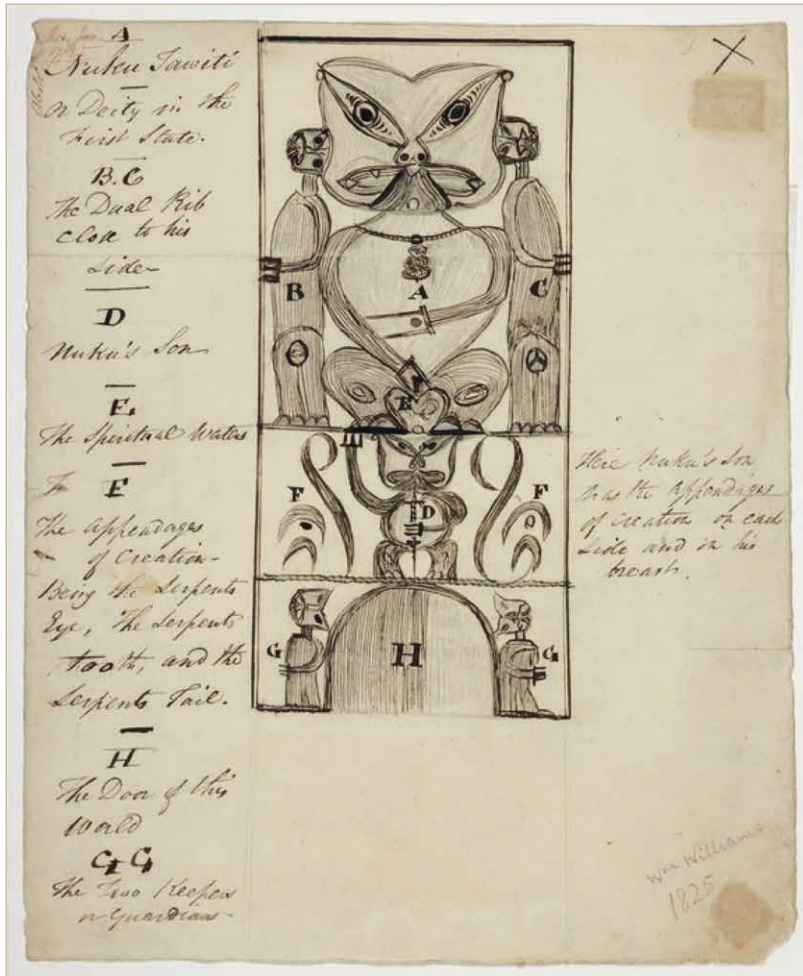 A
Nuku Tawiti
or Deity in the
First State.
B. C
The Dual Rib
close to his
side
D
Nuku's Son
E.
The Spiritual Waters
F
The Appendages
of Creation-
Being the Serpents
Eye, The Serpents
tooth, and the
Serpents Tail.
H
The Door of this
World
G G
The Two Keepers
or Guardians-
X
B
A
C
E
F
D
F
G
H
G
Here Nuku's Son
has the Appendages
of Creation on each
side and in his
breast.
Wm Williams
1825